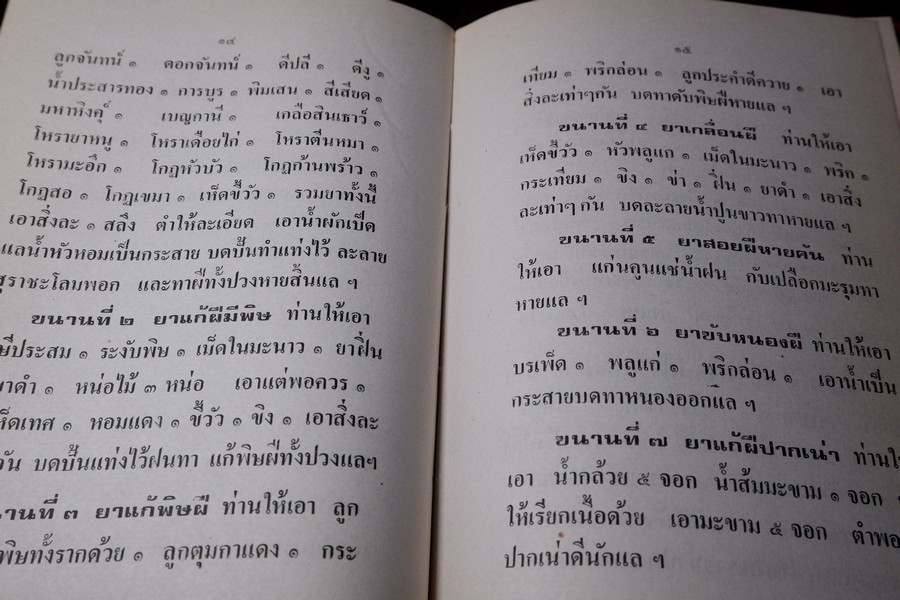 ๑๔
ลูกจันทน์ ๑ ดอกจันทน์ ๑ ดีปลี ๑ ดีงู ๑
น้ำประสารทอง ๑ การบูร ๑ พิมเสน ๑ สีเสียด ๑
มหาหิงคุ์ ๑ เบญกานี ๑ เกลือสินเธาว์ ๑
โหรายาหนู ๑ โหราเดือยไก่ ๑ โหราตีนหมา ๑
โหรามะอึก ๑ โกฏหัวบัว ๑ โกฏก้านพร้าว ๑
โกฏสอ ๑ โกฏเขมา ๑ เห็ดขี้วัว ๑ รวมยาทั้งนี้
เอาสิ่งละ ๑ สลึง ตำให้ละเอียด เอาน้ำผักเป็ด
แลน้ำหัวหอมเป็นกระสาย บดปั้นทำแท่งไว้ ละลาย
สุราชะโลมพอก และทาฝีทั้งปวงหายสิ้นแล ๆ
ขนานที่ ๒ ยาแก้ฝีมีพิษ ท่านให้เอา
ประสม ๑ ระงับพิษ ๑ เม็ดในมะนาว ๑ ยาฝิ่น
ยาดำ ๑ หน่อไม้ ๓ หน่อ เอาแต่พอควร ๑
เห็ดเทศ ๑ หอมแดง ๑ ขี้วัว ๑ ขิง ๑ เอาสิ่งละ
บดปั้นแท่งไว้ฝนทา แก้พิษฝีทั้งปวงแลๆ
ขนานที่ ๓ ยาแก้พิษฝี ท่านให้เอา ลูก
พิษทั้งรากด้วย ๑ ลูกตุมกาแดง ๑ กระ
๑๕
เทียม ๑ พริกล่อน ๑ ลูกประคำดีควาย ๑ เอา
สิ่งละเท่าๆกัน บดทาดับพิษฝีหายแล ๆ
ขนานที่ ๔ ยาเกลื่อนฝี ท่านให้เอา
เห็ดขี้วัว ๑ หัวพลูแก ๑ เม็ดในมะนาว ๑ พริก ๑
กระเทียม ๑ ขิง ๑ ข่า ๑ ฝิ่น ๑ ยาดำ ๑ เอาสิ่ง
ละเท่าๆ กัน บดละลายน้ำปูนขาวทาหายแล ๆ
ขนานที่ ๕ ยาสอยฝีหายคัน ท่าน
ให้เอา แก่นคูนแช่น้ำฝน กับเปลือกมะรุมทา
หายแล ๆ
ขนานที่ ๖ ยาขับหนองฝี ท่านให้เอา
บรเพ็ด ๑ พลูแก่ ๑ พริกล่อน ๑ เอาน้ำเป็น
กระสายบดทาหนองออกแล ๆ
ขนานที่ ๗ ยาแก้ฝีปากเน่า ท่านให้
เอา น้ำกล้วย ๕ จอก น้ำส้มมะขาม ๑ จอก
ให้เรียกเนื้อด้วย เอามะขาม ๕ จอก ตำพอก
ปากเน่าดีนักแล ๆ